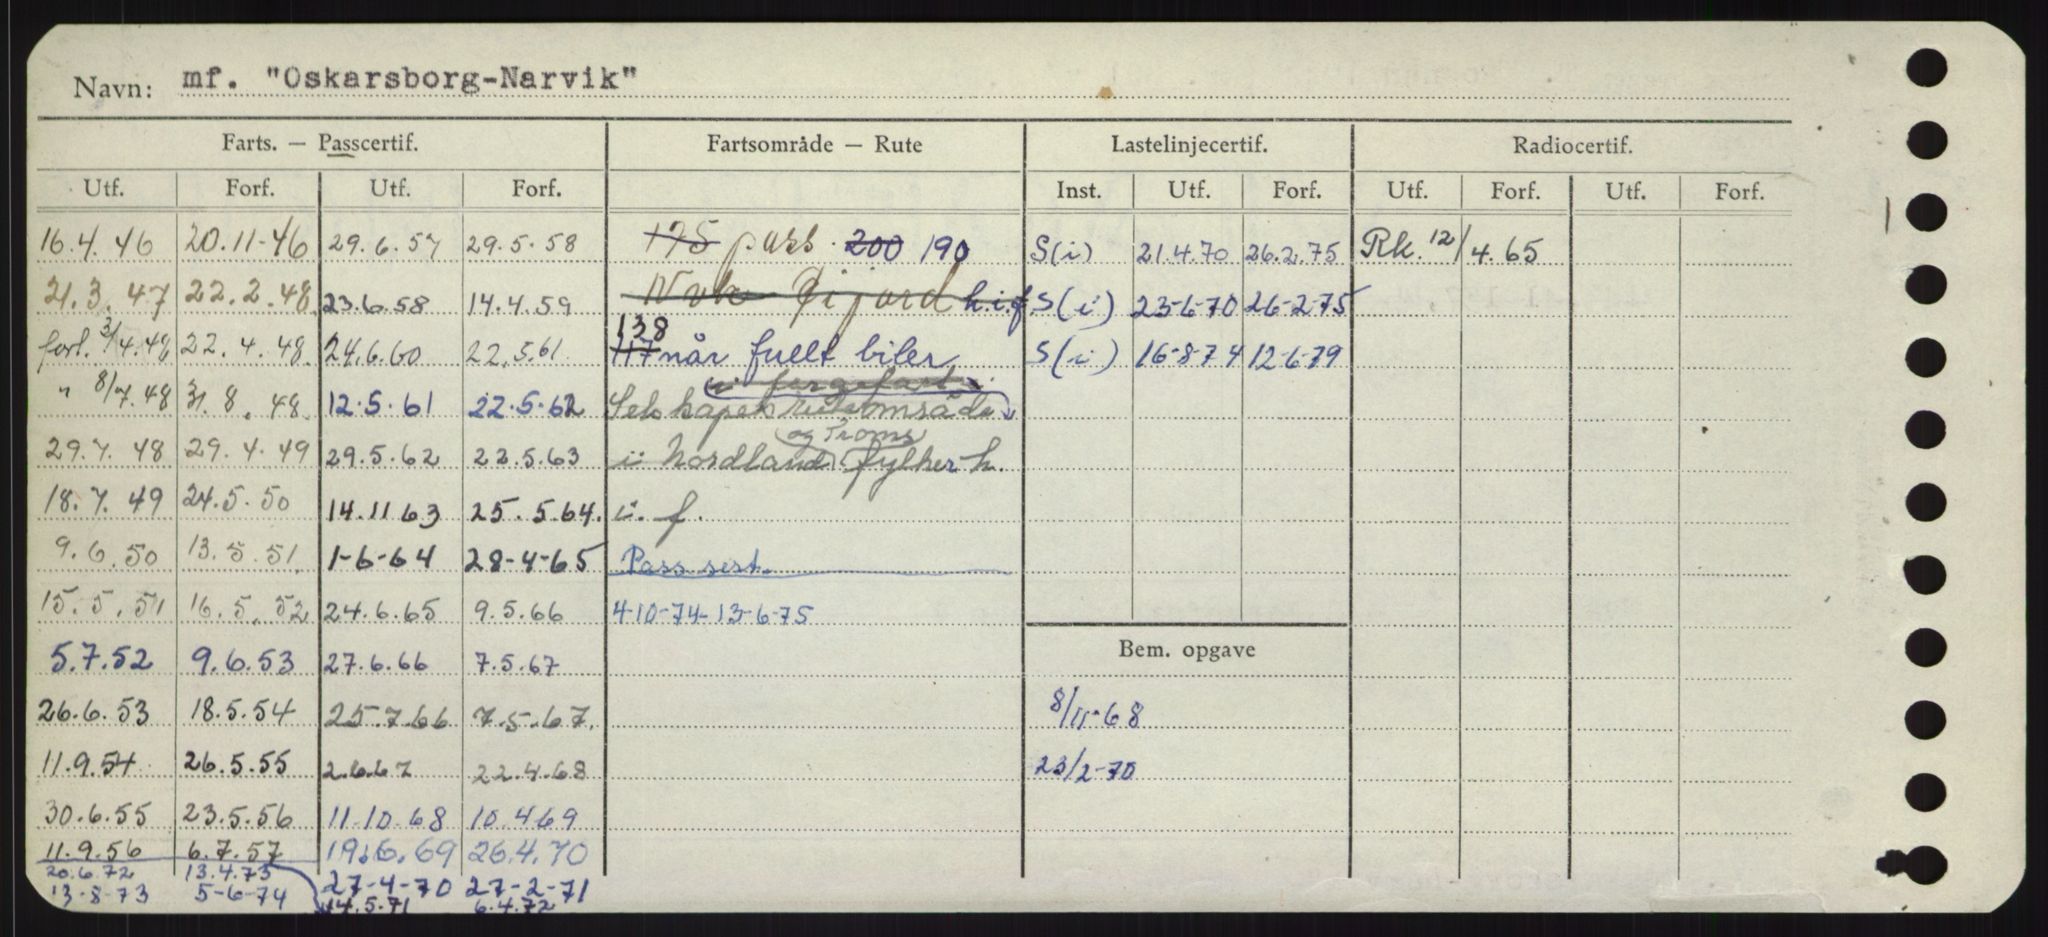 Navn: mf. "Oskarsborg-Narvik"
Farts. — Passcertif. Fartsområde — Rute Lastelinjecertif. Radiocertif.
Utf. Forf. Utf. Forf. Inst. Utf. Forf. Utf. Forf. Utf. Forf.
16.4.46 20.11-46 29.6.57 29.5.58 175 pass. 200 190 S(i) 21.4.70 26.2.75 Rk. 12/4.65
21.3.47 22.2.48. 23.6.58 14.4.59 Nvk - Øijord h.i.f S(i) 23-6-70 26-2-75
forl. 3/4.48 22.4.48. 24.6.60 22.5.61. 138 117 når fullt biler S(i) 16-8-74 12-6-79
" 8/7.48 31.8.48. 12.5.61 22.5.62 i fergefart Selskapets ruteområde
29.7.48 29.4.49 29.5.62 22.5.63 i Nordland og Troms fylker h.
18.7.49 24.5.50 14.11 63 25.5.64. i. f.
9.6.50 13.5.51. 1-6-64 28-4-65 Pass sert.
15.5.51 16.5.52 24.6.65 9.5.66 4-10-74-13-6-75
5.7.52 9.6.53 27.6.66 7.5.67 Bem. opgave
26.6.53 18.5.54 25.7.66 7.5.67. 8/11-68
11.9.54 26.5.55 2.6.67 22.4.68 23/2-70
30.6.55 23.5.56 11.10.68 10.4.69
11.9.56 6.7.57 19.6.69 26.4.70
20.6.72 13.4.73 27-4-70 27-2-71
13-8-73 5-6-74 14.5.71 6.4.72